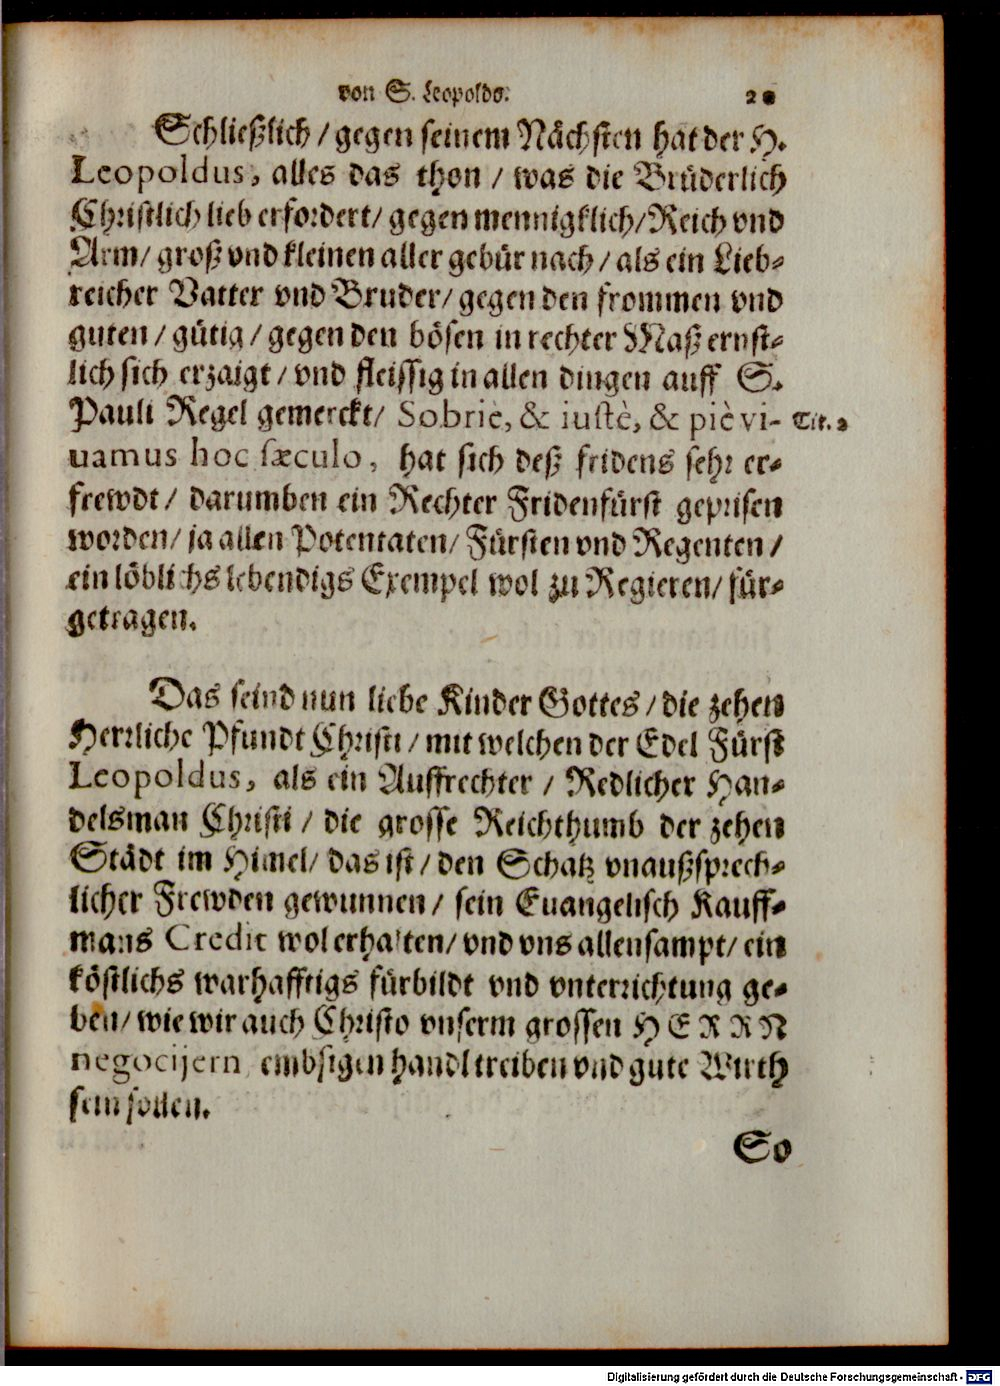 von S. Leopoldo.
Schließlich / gegen seinem Nächsten hat der H.
Leopoldus, alles das thon / was die Brüderlich
Christlich lieb erfordert / gegen mennigklich / Reich vnd
Arm / groß vnd kleinen aller gebür nach / als ein Lieb-
reicher Vatter vnd Bruder / gegen den frommen vnd
guten / gütig / gegen den bösen in rechter Maß ernst-
lich sich erzaigt / vnd fleissig in allen dingen auff S.
Pauli Regel gemerckt / Sobriè, & iustè, & piè vi- Tit. 2
uamus hoc sæculo, hat sich deß fridens sehr er-
frewdt / darumben ein Rechter Fridenfürst geprisen
worden / ja allen Potentaten / Fürsten vnd Regenten /
ein löblichs lebendigs Exempel wol zu Regieren / für-
getragen.
Das seind nun liebe Kinder Gottes / die zehen
Herrliche Pfundt Christi / mit welchen der Edel Fürst
Leopoldus, als ein Auffrechter / Redlicher Han-
delsman Christi / die grosse Reichthumb der zehen
Städt im Himel / das ist / den Schatz vnaußsprech-
licher Frewden gewunnen / sein Euangelisch Kauff-
mans Credit wol erhalten / vnd vns allensampt / ein
köstlichs warhafftigs fürbildt vnd vnterrichtung ge-
ben / wie wir auch Christo vnserm grossen HERRN
negocijern embsigen handl treiben vnd gute Wirth
sein sollen.
So
Digitalisierung gefördert durch die Deutsche Forschungsgemeinschaft - DFG